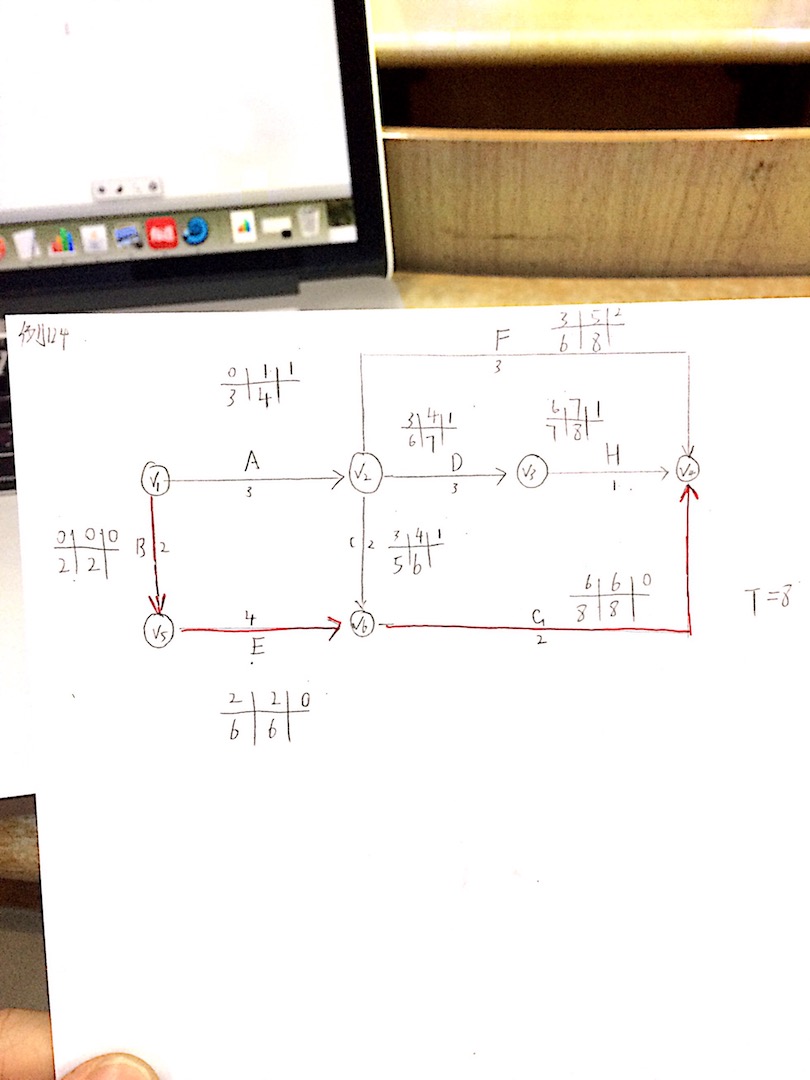 例11.4
F
3 5 2
6 8
3
0 1 1
3 4
3 4 1
6 7
6 7 1
7 8
V1
A
3
V2
D
3
V3
H
1
V4
0 0 0
2 2
B 2
C 2
3 4 1
5 6
6 6 0
8 8
T=8
V5
4
E
V6
G
2
2 2 0
6 6